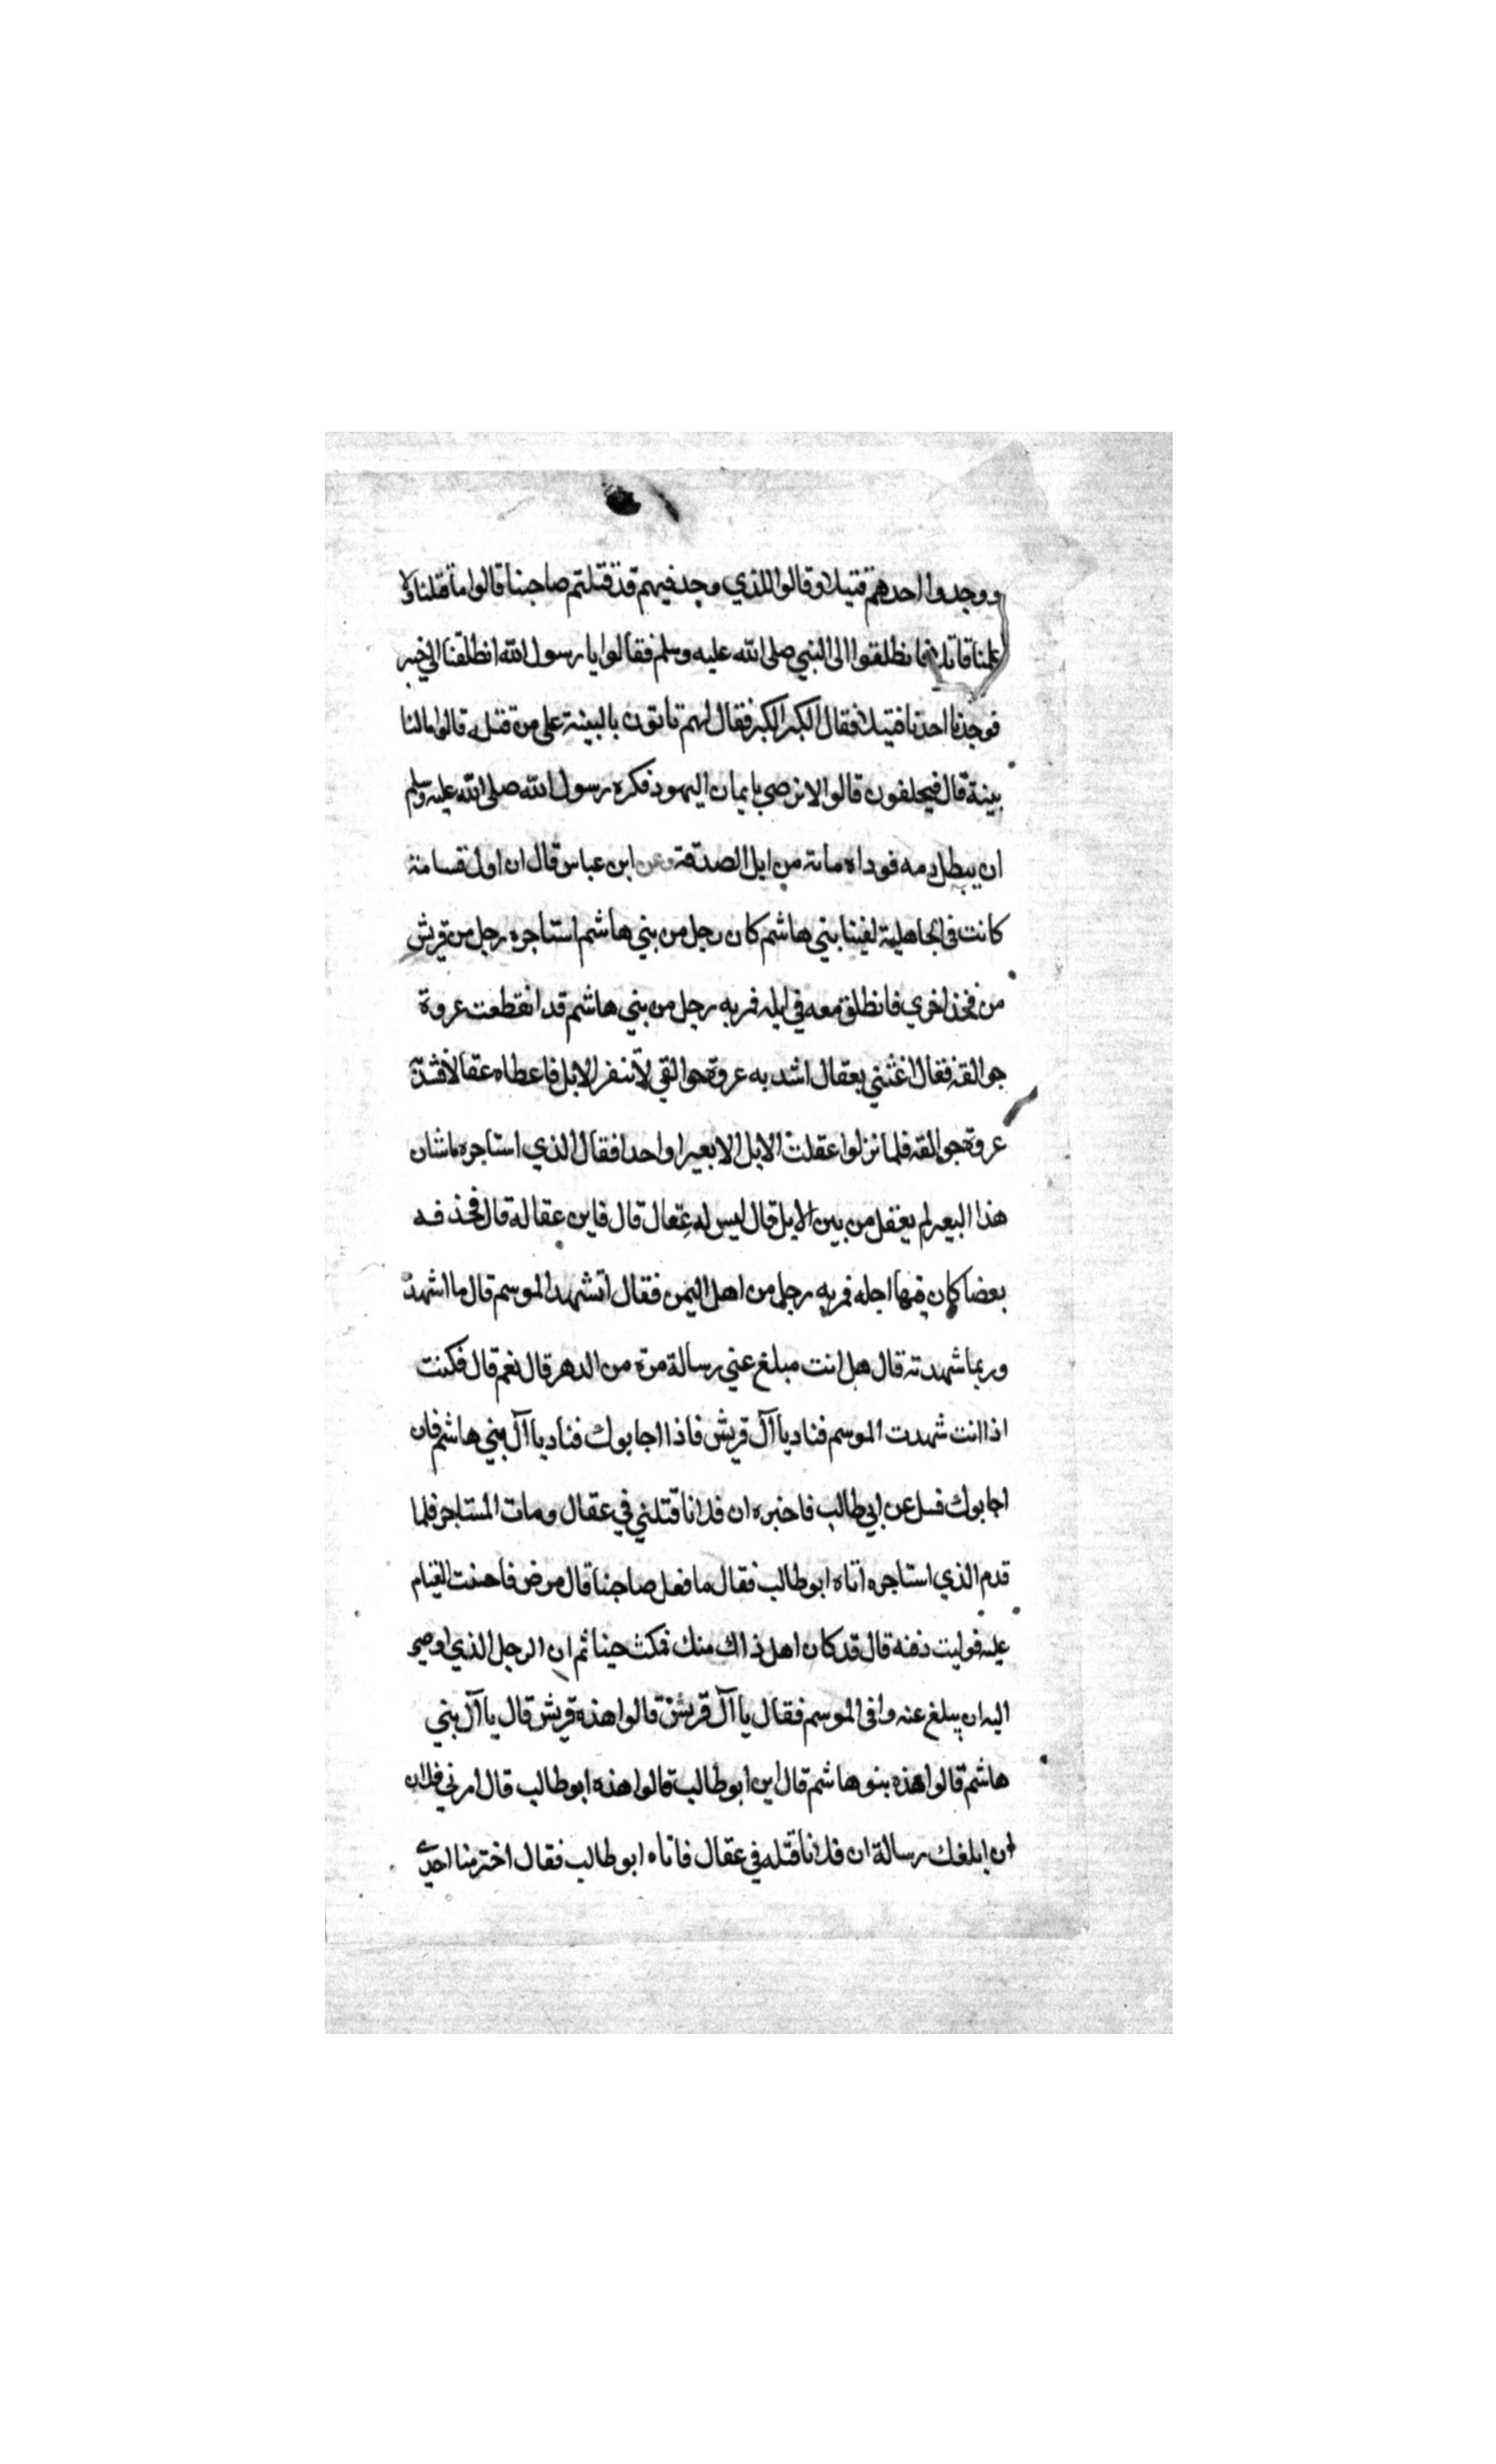 ووجدوا احدهم قتيلا وقالوا للذي وجد فيهم قد قتلتم صاحبنا قالوا ما قتلنا ولا
علمنا قاتلا فانطلقوا الى النبي صلى الله عليه وسلم فقالوا يا رسول الله انطلقنا الى خيبر
فوجدنا احدنا قتيلا فقال الكبر الكبر فقال لهم تاتون بالبينة على من قتله قالوا ما لنا
بينة قال فيحلفون قالوا لا نرضي بايمان اليهود فكره رسول الله صلى الله عليه وسلم
ان يبطل دمه فوداه مائة من ابل الصدقة وعن ابن عباس قال ان اول قسامة
كانت في الجاهلية لفينا بني هاشم كان رجل من بني هاشم استاجره رجل من قريش
من فخذ اخري فانطلق معه في ابله فمر به رجل من بني هاشم قد انقطعت عروة
جوالقه فقال اغثني بعقال اشد به عروة جوالقي لا تنفر الابل فاعطاه عقالا فشد به
عروة جوالقه فلما نزلوا عقلت الابل الا بعيرا واحدا فقال الذي استاجره ما شان
هذا البعير لم يعقل من بين الابل قال ليس له عقال قال فاين عقاله قال فحذفه
بعضا كان فيها اجله فمر به رجل من اهل اليمن فقال اتشهد الموسم قال ما اشهد
وربما شهدته قال هل انت مبلغ عني رسالة مرة من الدهر قال نعم قال فكنت
اذا انت شهدت الموسم فناد يا آل قريش فاذا اجابوك فناد يا آل بني هاشم فان
اجابوك فسل عن ابي طالب فاخبره ان فلانا قتلني في عقال ومات المستاجر فلما
قدم الذي استاجره اتاه ابو طالب فقال ما فعل صاحبنا قال مرض فاحسنت القيام
عليه فوليت دفنه قال قد كان اهل ذاك منك فمكث حينا ثم ان الرجل الذي اوصى
اليه ان يبلغ عنه وافى الموسم فقال يا آل قريش قالوا هذه قريش قال يا آل بني
هاشم قالوا هذه بنو هاشم قال اين ابو طالب قالوا هذه ابو طالب قال امرني فلان
ان ابلغك رسالة ان فلانا قتله في عقال فاتاه ابو طالب فقال اختر منا احدى